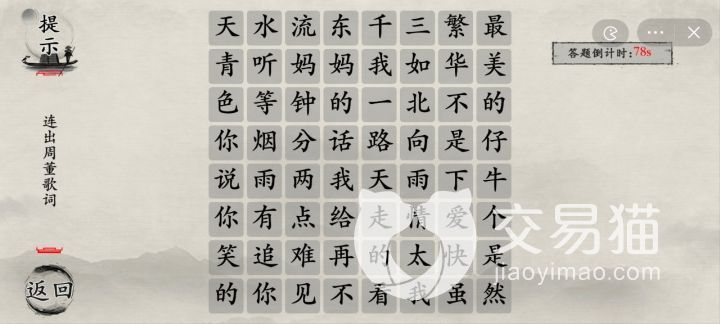 提示
连出周董歌词
返回
天水流东千三繁最
青听妈妈我如华美
色等钟的一北不的
你烟分话路向是仔
说雨两我天雨下牛
你有点给走情爱个
笑追难再的太快是
的你见不看我虽然
答题倒计时:78s
交易猫
jiaoyimao.com